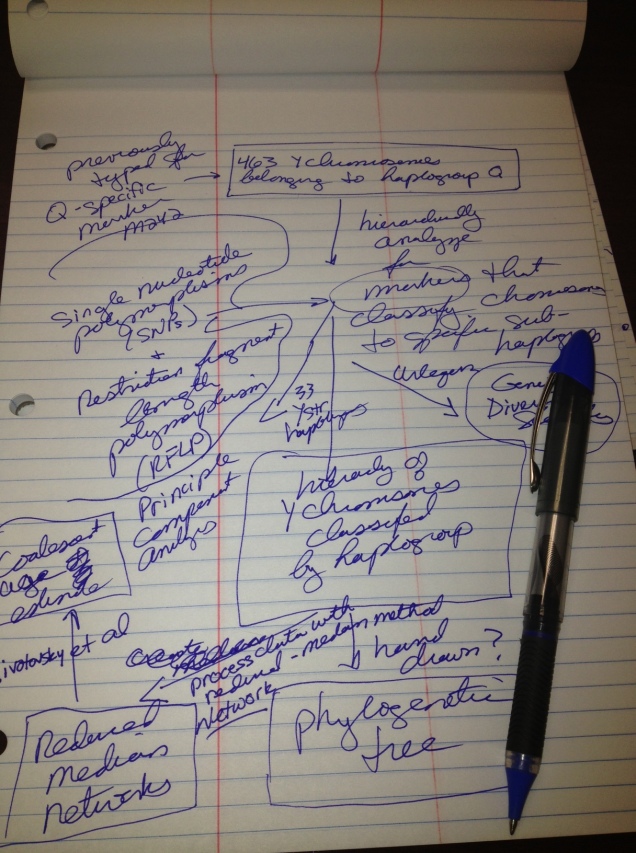 previously
typed for
Q-specific
marker
M242
463 Y chromosomes
belonging to haplogroup Q
hierarchically
analyze
for
markers that
classify chromosomes
to specific sub-
haplogroups
Single nucleotide
polymorphisms
(SNPs)
+
Restriction fragment
length
polymorphism
(RFLP)
33
YSTR
haplotypes
Arlequin
Gene
Diver
Principle
Component
Analysis
hierarchy of
Y chromosomes
classified
by haplogroup
Coalescent
age
estimate
ivotovsky et al
process data with
reduced-median method
Network
hand
drawn?
Reduced
Median
networks
phylogenetic
tree